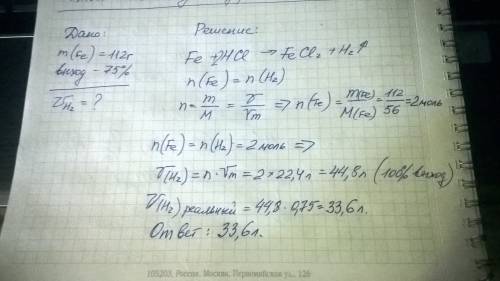 Дано:
m(Fe) = 112г
выход - 75%
V H₂ = ?
Решение:
Fe + 2HCl → FeCl₂ + H₂↑
n(Fe) = n(H₂)
n = m/M = V/Vm ⇒ n(Fe) = m(Fe)/M(Fe) = 112/56 = 2 моль
n(Fe) = n(H₂) = 2 моль ⇒
V(H₂) = n · Vm = 2 × 22,4 л = 44,8 л (100% выход)
V(H₂) реальный = 44,8 · 0,75 = 33,6 л.
Ответ: 33,6 л.
105203, Россия, Москва, Первомайская ул., 126